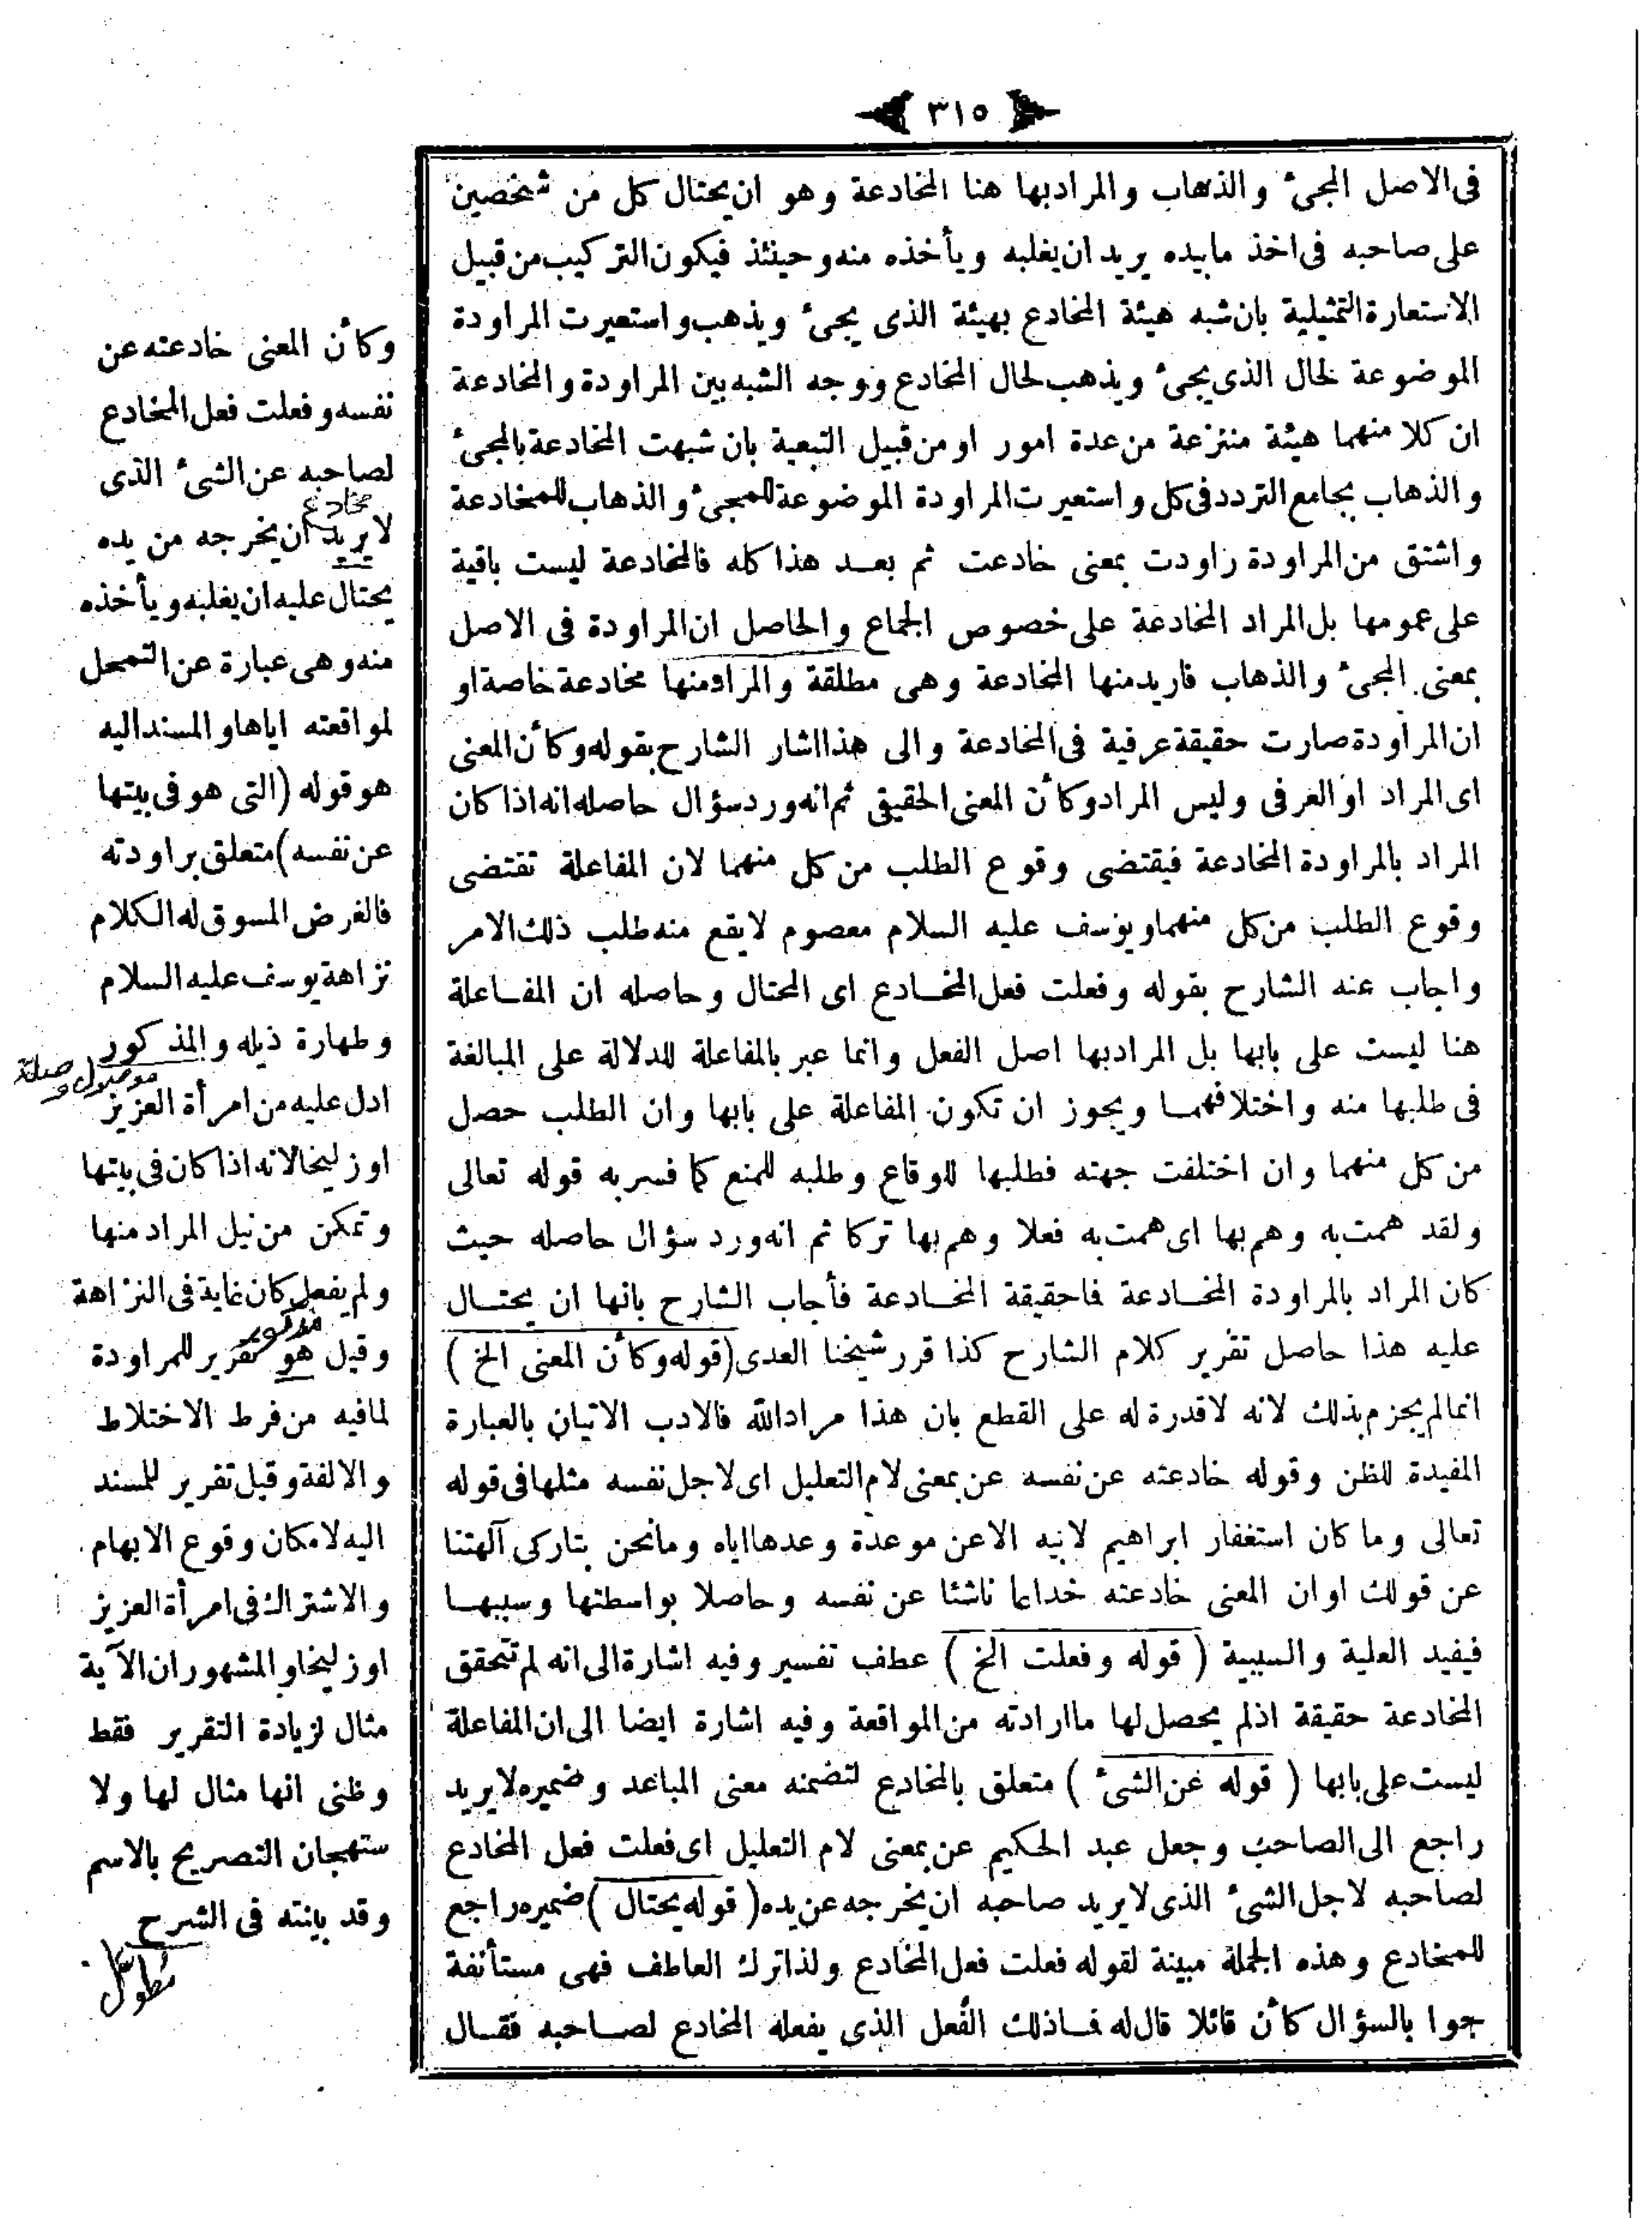 ٣١٥
فى الاصل المجئ والذهاب والمراد بها هنا المخادعة وهو ان يحتال كل من شخصين
على صاحبه فى اخذ ما بيده يريد ان يغلبه ويأخذه منه وحينئذ فيكون التركيب من قبيل
الاستعارة التمثيلية بان شبه هيئة المخادع بهيئة الذى يجئ ويذهب واستعيرت المراودة
الموضوعة لحال الذى يجئ ويذهب لحال المخادع ووجه الشبه بين المراودة والمخادعة
ان كلا منهما هيئة منتزعة من عدة امور او من قبيل التبعية بان شبهت المخادعة بالمجئ
والذهاب بجامع التردد فى كل واستعيرت المراودة الموضوعة للمجئ والذهاب للمخادعة
واشتق من المراودة راودت بمعنى خادعت ثم بعد هذا كله فالمخادعة ليست باقية
على عمومها بل المراد المخادعة على خصوص الجماع والحاصل ان المراودة فى الاصل
بمعنى المجئ والذهاب فاريد منها المخادعة وهى مطلقة والمراد منها مخادعة خاصة او
ان المراودة صارت حقيقة عرفية فى المخادعة والى هذا اشار الشارح بقوله وكأن المعنى
اى المراد او العرفى وليس المراد وكأن المعنى الحقيقى ثم انه ورد سؤال حاصله انه اذا كان
المراد بالمراودة المخادعة فيقتضى وقوع الطلب من كل منهما لان المفاعلة تقتضى
وقوع الطلب من كل منهما ويوسف عليه السلام معصوم لا يقع منه طلب ذلك الامر
واجاب عنه الشارح بقوله وفعلت فعل المخادع اى المحتال وحاصله ان المفاعلة
هنا ليست على بابها بل المراد بها اصل الفعل وانما عبر بالمفاعلة للدلالة على المبالغة
فى طلبها منه واختلافهما ويجوز ان تكون المفاعلة على بابها وان الطلب حصل
من كل منهما وان اختلفت جهته فطلبها للوقاع وطلبه للمنع كما فسر به قوله تعالى
ولقد همت به وهم بها اى همت به فعلا وهم بها تركا ثم انه ورد سؤال حاصله حيث
كان المراد بالمراودة المخادعة فما حقيقة المخادعة فأجاب الشارح بانها ان يحتال
عليه هذا حاصل تقرير كلام الشارح كذا قرر شيخنا العدى (قوله وكأن المعنى الخ)
انما لم يجزم بذلك لانه لا قدرة له على القطع بان هذا مراد الله فالادب الاتيان بالعبارة
المفيدة للظن وقوله خادعته عن نفسه عن بمعنى لام التعليل اى لاجل نفسه مثلها فى قوله
تعالى وما كان استغفار ابراهيم لابيه الا عن موعدة وعدها اياه وما نحن بتاركى آلهتنا
عن قولك او ان المعنى خادعته خداعا ناشئا عن نفسه وحاصلا بواسطتها وسببها
فيفيد العلية والسببية (قوله وفعلت الخ) عطف تفسير وفيه اشارة الى انه لم تتحقق
المخادعة حقيقة اذ لم يحصل لها ما ارادته من المواقعة وفيه اشارة ايضا الى ان المفاعلة
ليست على بابها (قوله عن الشئ) متعلق بالمخادع لتضمنه معنى المباعد وضميره لا يريد
راجع الى الصاحب وجعل عبد الحكيم عن بمعنى لام التعليل اى فعلت فعل المخادع
لصاحبه لاجل الشئ الذى لا يريد صاحبه ان يخرجه عن يده (قوله يحتال) ضميره راجع
للمخادع وهذه الجملة مبينة لقوله فعلت فعل المخادع ولذا ترك العاطف فهى مستأنفة
جوا بالسؤال كأن قائلا قال له فما ذلك الفعل الذى يفعله المخادع لصاحبه فقال
وكأن المعنى خادعته عن
نفسه وفعلت فعل المخادع
لصاحبه عن الشئ الذى
مخادع
لا يريد ان يخرجه من يده
يحتال عليه ان يغلبه ويأخذه
منه وهى عبارة عن التمحل
لمواقعته اياها والمسند اليه
هو قوله (التى هو فى بيتها
عن نفسه) متعلق براودته
فالغرض المسوق له الكلام
نزاهة يوسف عليه السلام
وطهارة ذيله والمذكور
موصول وصلة
ادل عليه من امرأة العزيز
اوزليخا لانه اذا كان فى بيتها
وتمكن من نيل المراد منها
ولم يفعل كان غاية فى النزاهة
مذكور
وقيل هو تقرير للمراودة
لما فيه من فرط الاختلاط
والالفة وقيل تقرير للمسند
اليه لامكان وقوع الابهام
والاشتراك فى امرأة العزيز
اوزليخا والمشهور ان الآية
مثال لزيادة التقرير فقط
وظنى انها مثال لها ولا
ستهجان التصريح بالاسم
وقد بينته فى الشرح
مطول